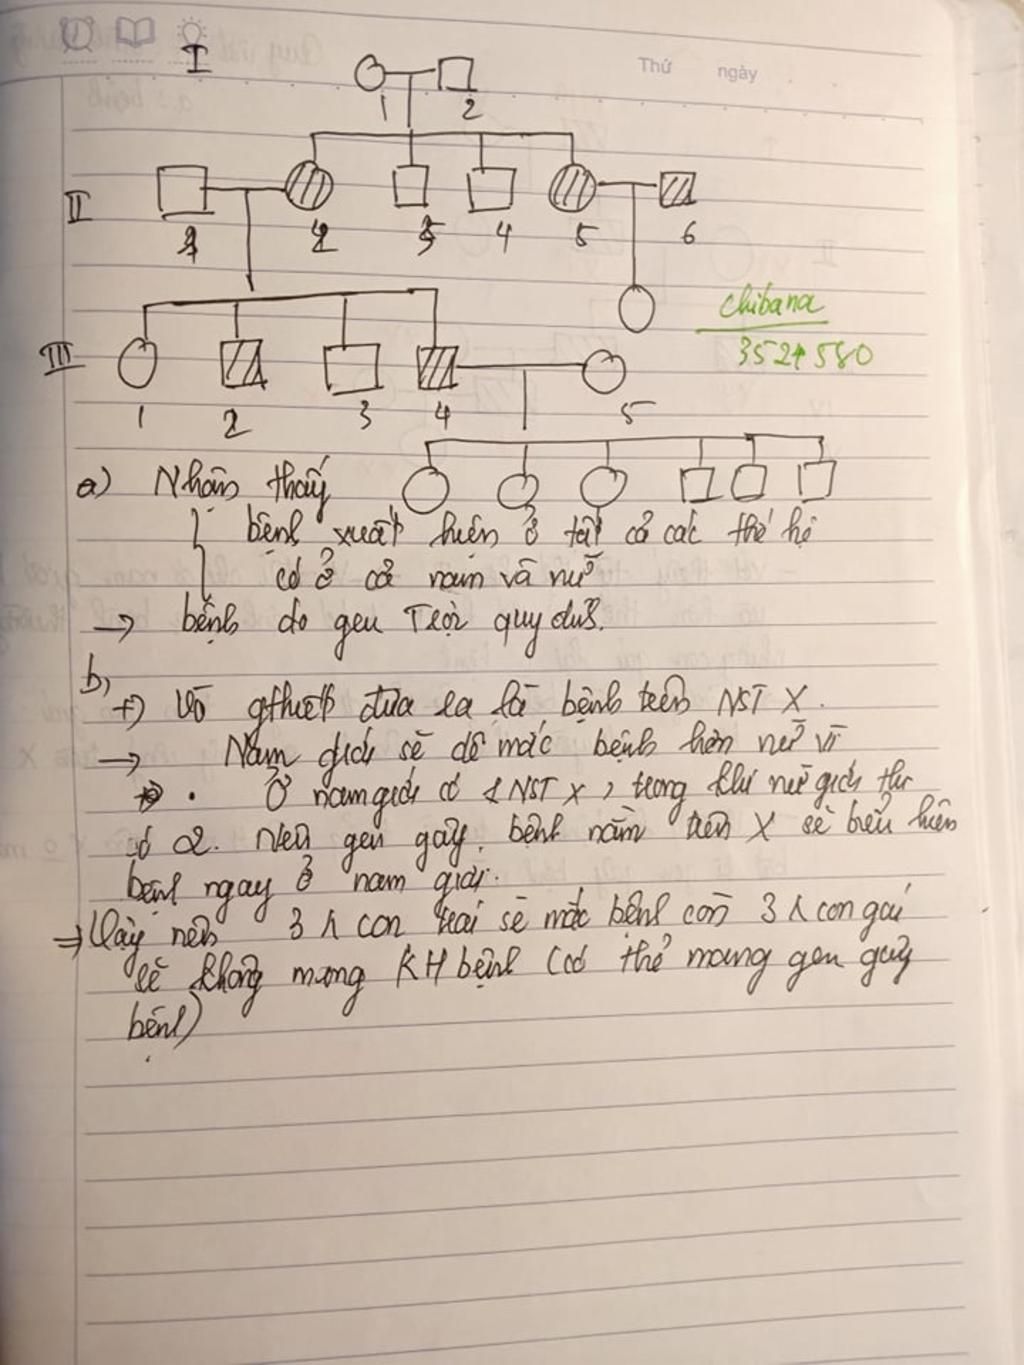 Thứ ngày
I
1 2
II
1 2 3 4 5 6
chibana
3524580
III
1 2 3 4 5
a) Nhận thấy
bệnh xuất hiện ở tất cả các thế hệ
có ở cả nam và nữ
→ bệnh do gen Trội quy định.
b,
+) Vì gthiết đưa ra là bệnh trên NST X.
→ Nam giới sẽ dễ mắc bệnh hơn nữ vì
. Ở nam giới có 1 NST X, trong khi nữ giới thì
có 2. Nếu gen gây bệnh nằm trên X sẽ biểu hiện
bệnh ngay ở nam giới.
⇒ Vậy nên 3 con trai sẽ mắc bệnh còn 3 con gái
sẽ không mang KH bệnh (có thể mang gen gây
bệnh)